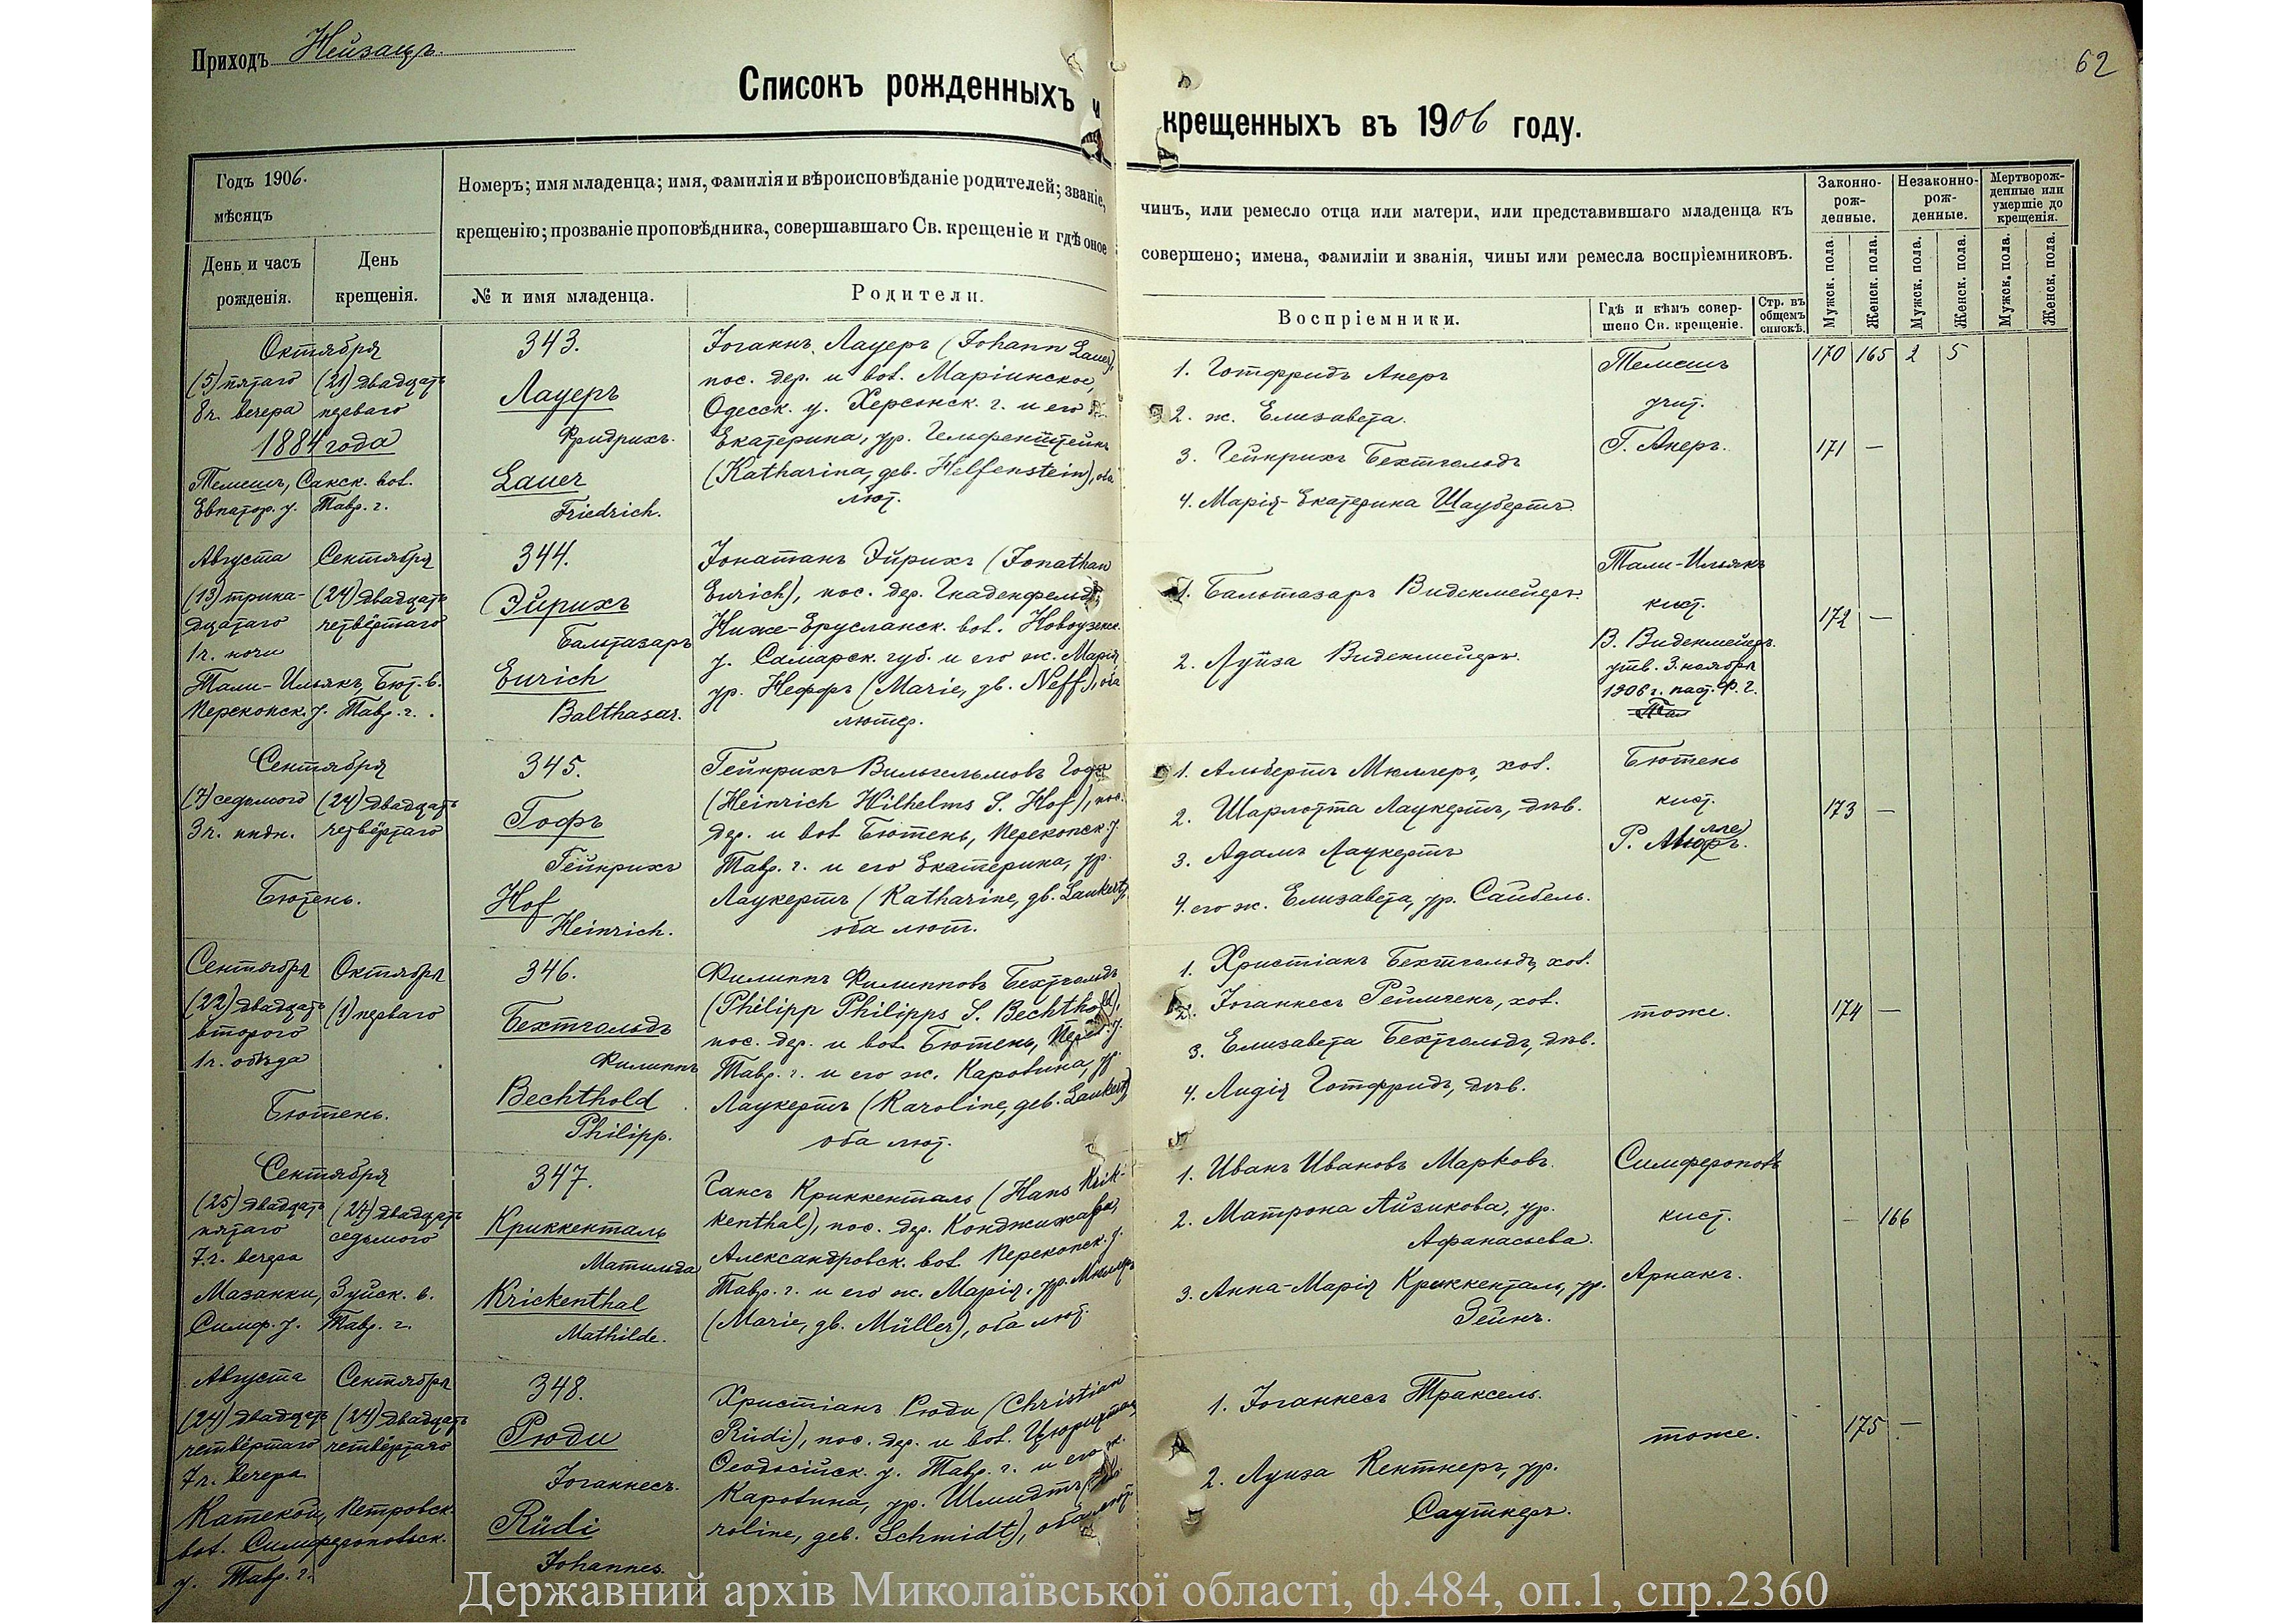 Приходъ Нейзацъ.
62
Списокъ рожденныхъ и крещенныхъ въ 1906 году.
Годъ 1906.
мѣсяцъ
День и часъ
рожденія.
День
крещенія.
Номеръ; имя младенца; имя, фамилія и вѣроисповѣданіе родителей; званіе,
крещенію; прозваніе проповѣдника, совершавшаго Св. крещеніе и гдѣ оное
№ и имя младенца.
Родители.
чинъ, или ремесло отца или матери, или представившаго младенца къ
совершено; имена, фамиліи и званія, чины или ремесла воспріемниковъ.
Воспріемники.
Гдѣ и кѣмъ совер-
шено Св. крещеніе.
Стр. въ
общемъ
спискѣ.
Законно-
рож-
денные.
Незаконно-
рож-
денные.
Мертворож-
денные или
умершіе до
крещенія.
Мужск. пола.
Женск. пола.
Мужск. пола.
Женск. пола.
Мужск. пола.
Женск. пола.
Октября
(5) пятаго
8 ч. вечера
(21) двадцать
перваго
1884 года
Темешъ, Сакск. вол.
Евпатор. у. Тавр. г.
343.
Лауеръ
Фридрихъ.
Lauer
Friedrich.
Іоганнъ Лауеръ (Johann Lauer),
пос. дер. и вол. Маріинское,
Одесск. у. Херсонск. г. и его ж.
Екатерина, ур. Гельфенштейнъ
(Katharina, geb. Helfenstein), оба
лют.
1. Готфридъ Акеръ
2. ж. Елизавета.
3. Гейнрихъ Бехтгольдъ
4. Марія-Екатерина Шаубертъ
Темешъ
учит.
Г. Акеръ.
170 165 2 5
171 —
Августа
(13) трина-
дцатаго
1 ч. ночи
Сентября
(24) двадцать
четвёртаго
Тали-Ильякъ, Бют. в.
Перекопск. у. Тавр. г.
344.
Эйрихъ
Балтазаръ
Eurich
Balthasar.
Іонатанъ Эйрихъ (Jonathan
Eurich), пос. дер. Гнаденфельдъ,
Ниже-Ерусланск. вол. Новоузенск.
у. Самарск. губ. и его ж. Марія,
ур. Неффъ (Marie, gb. Neff), оба
лютер.
1. Бальтазаръ Виденмейеръ.
2. Луиза Виденмейеръ.
Тали-Ильякъ
кист.
В. Виденмейеръ.
утв. 3. ноября
1906 г. паст. Ф. Г.
172 —
Сентября
(7) седьмого
3 ч. ппдн.
(24) двадцать
четвёртаго
Бютень.
345.
Гофъ
Гейнрихъ
Hof
Heinrich.
Гейнрихъ Вильгельмовъ Гофъ
(Heinrich Wilhelms S. Hof), пос.
дер. и вол. Бютень, Перекопск. у.
Тавр. г. и его Екатерина, ур.
Лаукертъ (Katharine, gb. Laukert),
оба лют.
1. Альбертъ Мюллеръ, хол.
2. Шарлотта Лаукертъ, дѣв.
3. Адамъ Лаукертъ
4. его ж. Елизавета, ур. Сайбель.
Бютень
кист.
173 —
Сентября
(22) двадцать
второго
1 ч. обѣда
Октября
(1) перваго
Бютень.
346.
Бехтгольдъ
Филиппъ
Bechthold
Philipp.
Филиппъ Филипповъ Бехтгольдъ
(Philipp Philipps S. Bechthold),
пос. дер. и вол. Бютень, Перек. у.
Тавр. г. и его ж. Каролина, ур.
Лаукертъ (Karoline, geb. Laukert)
оба лют.
1. Христіанъ Бехтгольдъ, хол.
2. Іоганнесъ Реймхенъ, хол.
3. Елизавета Бехтгольдъ, дѣв.
4. Лидія Готфридъ, дѣв.
тоже.
174 —
Сентября
(25) двадцать
пятаго
7 ч. вечера
(27) двадцать
седьмого
Мазанки, Зуйск. в.
Симф. у. Тавр. г.
347.
Криккенталь
Матильда
Krickenthal
Mathilde.
Гансъ Криккенталь (Hans Krik-
kenthal), пос. дер.
Александровск. вол. Перекопск. у.
Тавр. г. и его ж. Марія, ур. Мюллеръ
(Marie, gb. Müller), оба лют.
1. Иванъ Ивановъ Марковъ.
2. Матрона Айзикова, ур.
Афанасьева.
3. Анна-Марія Криккенталь, ур.
Зейнъ.
Симферополь
кист.
Арнакъ.
— 166
Августа
(24) двадцать
четвёртаго
7 ч. вечера
Сентября
(24) двадцать
четвёртаго
Катекой, Петровск.
вол. Симферопольск.
у. Тавр. г.
348.
Рюди
Іоганнесъ.
Rüdi
Johannes.
Христіанъ Рюди (Christian
Rüdi), пос. дер. и вол. Цюрихталь,
Ѳеодосійск. у. Тавр. г. и его ж.
Каролина, ур. Шмидтъ
roline, geb. Schmidt), оба лют.
1. Іоганнесъ Траксель.
2. Луиза Кентнеръ, ур.
Саутнеръ.
тоже.
175 —
Державний архів Миколаївської області, ф.484, оп.1, спр.2360